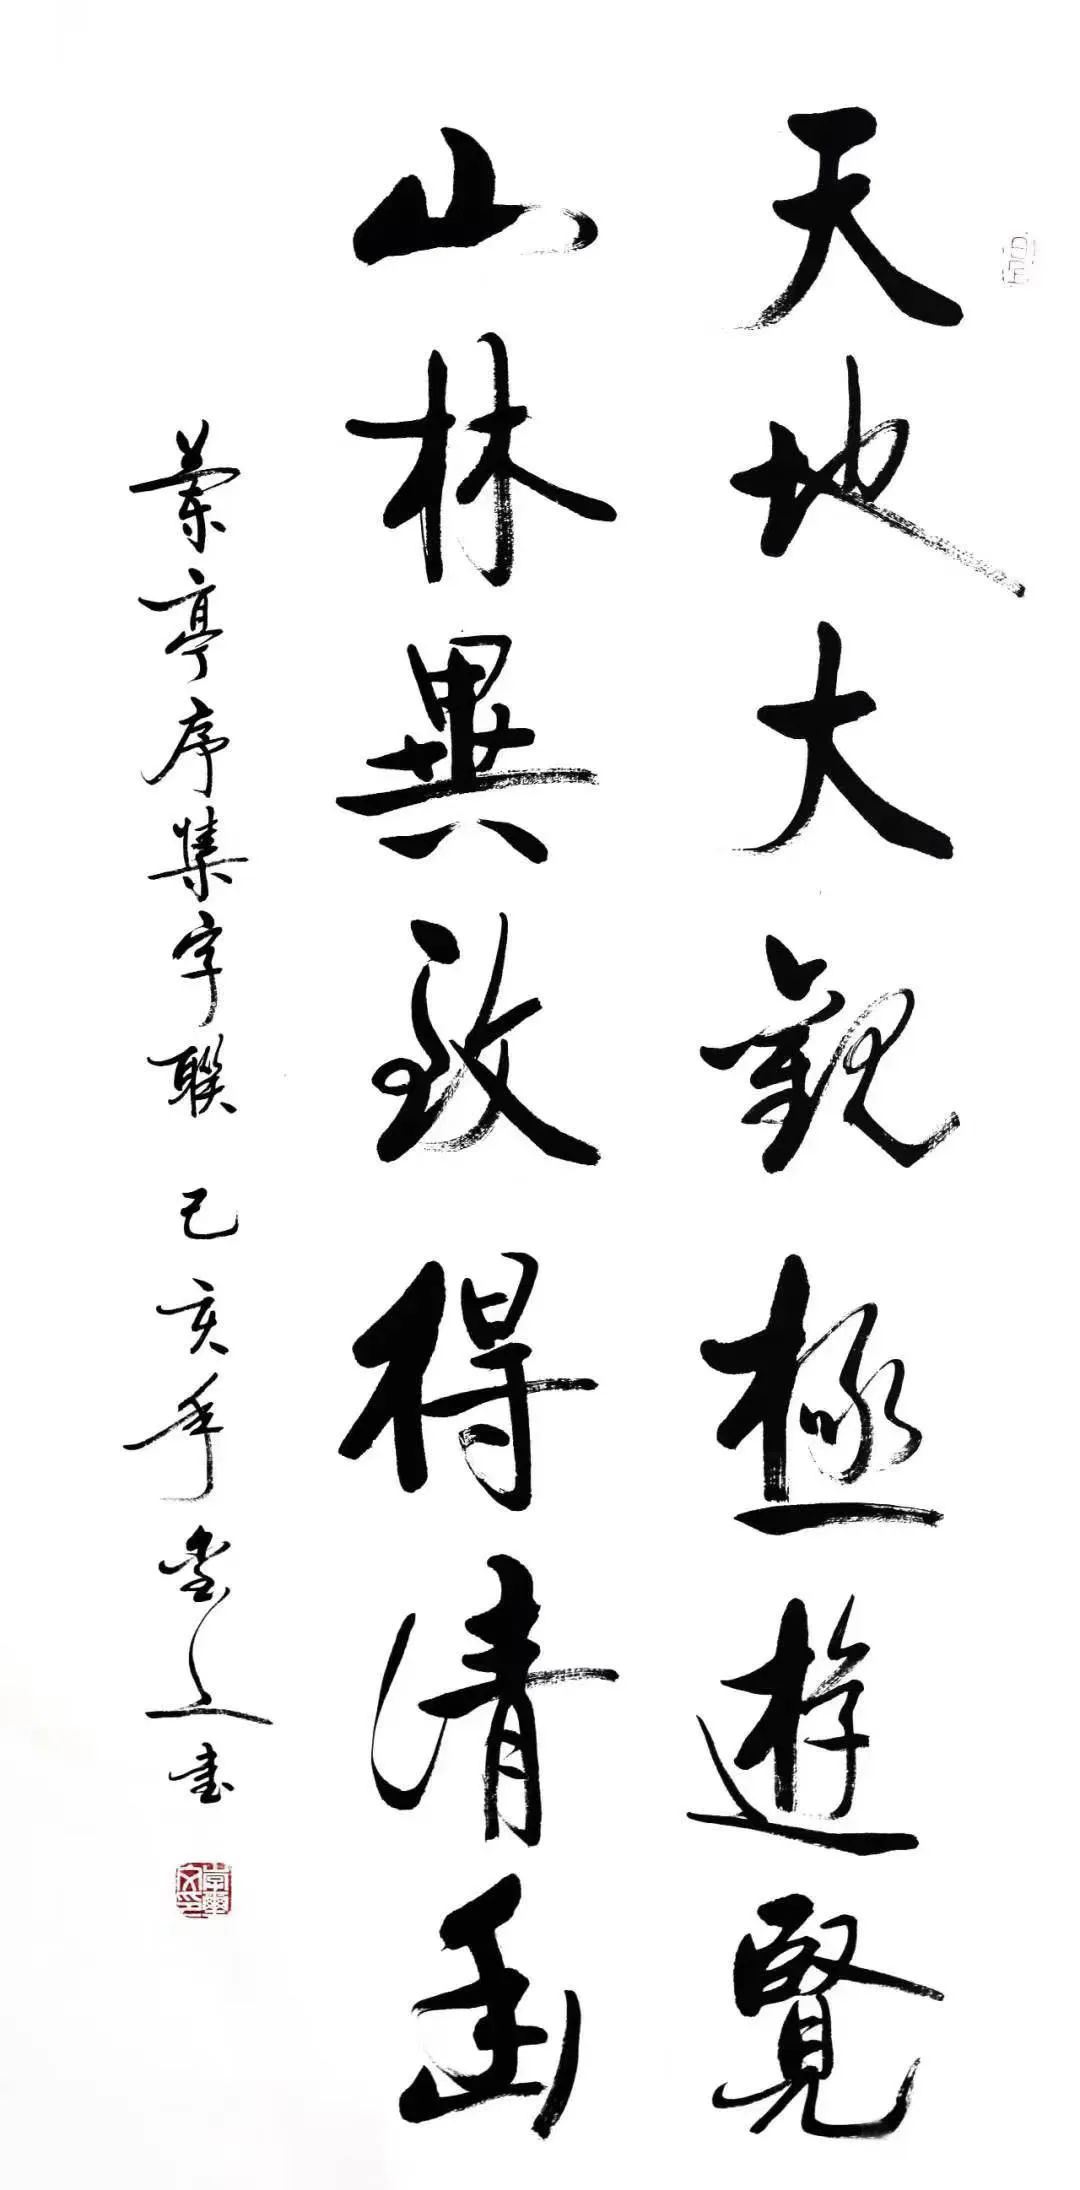 天地大觀極遊覽
山林異致得清幽
蘭亭序集字聯 己亥年 書